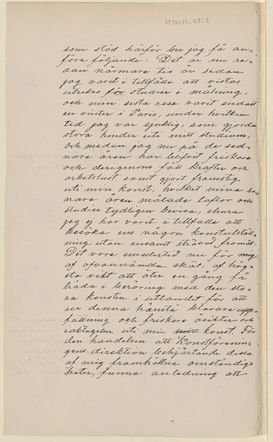 som stöd härför ber jag få an-
föra följande: Det är nu re-
dan närmare tio år sedan
jag varit i tillfälle att vistas
utrikes för studier i målning,
och min sista resa varit endast
en vinter i Paris, under hvilken
tid jag var sjuklig, som gjorde
stora hinder uti mitt studium,
och medan jag nu på de sed-
nare åren har blifvit friskare
och derigenom fått krafter och
arbetslust, samt gjort framsteg
uti min konst, hvilket mina se-
nare åren målade taflor och
studier tydligen bevisa, ehuru
jag ej har varit i tillfälle att
besöka ens någon konstutställ-
ning, utan ensamt sträfvat framåt.
Det vore emellertid nu för mig
af ofvannämda skäl, af hög-
sta vikt att åter en gång få
träda i beröring med den sto-
ra konsten i utlandet för att
ur denna hämta klarare upp-
fattning och friskare åsikter och
iakttagelser uti min konst. För
den händelse att Konstförenin-
gens direktion behjärtande dessa
af mig framhållna omständig-
heter, finna anledning att